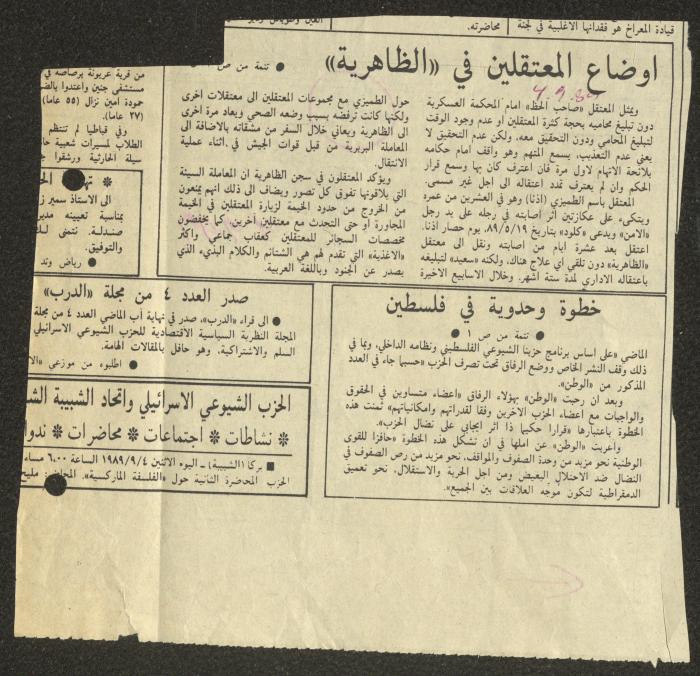 قيادة المعراخ هو فقدانها الاغلبية في لجنة
محاضرته.
اوضاع المعتقلين في «الظاهرية»
● تتمة من ص
4.9.89
ويمثل المعتقل «صاحب الحظ» امام المحكمة العسكرية
دون تبليغ محاميه بحجة كثرة المعتقلين أو عدم وجود الوقت
لتبليغ المحامي ودون التحقيق معه، ولكن عدم التحقيق لا
يعني عدم التعذيب، يسمع المتهم وهو واقف أمام حكامه
بلائحة الاتهام لاول مرة فان اعترف كان بها وسمع قرار
الحكم وان لم يعترف تمدد اعتقاله الى اجل غير مسمى.
المعتقل باسم الطميزي (اذنا) وهو في العشرين من عمره
ويتكىء على عكازتين اثر اصابته في رجله على يد رجل
«الامن» ويدعى «كلود» بتاريخ ٨٩/٥/١٩، يوم حصار اذنا.
اعتقل بعد عشرة ايام من اصابته ونقل الى معتقل
«الظاهرية» دون تلقي أي علاج هناك، ولكنه «سعيد» لتبليغه
باعتقاله الاداري لمدة ستة اشهر، وخلال الاسابيع الاخيرة
حول الطميزي مع مجموعات المعتقلين الى معتقلات اخرى
ولكنها كانت ترفضه بسبب وضعه الصحي ويعاد مرة اخرى
الى الظاهرية ويعاني خلال السفر من مشقاته بالاضافة الى
المعاملة البربرية من قبل قوات الجيش في اثناء عملية
الانتقال.
ويؤكد المعتقلون في سجن الظاهرية ان المعاملة السيئة
التي يلاقونها تفوق كل تصور ويضاف الى ذلك انهم يمنعون
من الخروج من حدود الخيمة لزيارة المعتقلين في الخيمة
المجاورة أو حتى التحدث مع معتقلين آخرين كما يخفضون
مخصصات السجائر للمعتقلين كعقاب جماعي واكثر
«الاغذية» التي تقدم لهم هي الشتائم والكلام البذيء الذي
يصدر عن الجنود وباللغة العربية.
من قرية عربونة برصاصه في
مستشفى جنين واعتدوا بالضر
حمودة امين نزال (٥٥ عاما)
(٢٧ عاما).
وفي قباطيا لم تنتظم
الطلاب لمسيرات شعبية حا
سيلة الحارثية ورشقوا
الى الاستاذ سمير ز
بمناسبة تعيينه مدير
صندلة. نتمنى لك
والتوفيق.
● رياض وتد
خطوة وحدوية في فلسطين
● تتمة من ص ١ ●
الماضي «على اساس برنامج حزبنا الشيوعي الفلسطيني ونظامه الداخلي، وبما في
ذلك وقف النشر الخاص ووضع الرفاق تحت تصرف الحزب «حسبما جاء في العدد
المذكور من «الوطن».
وبعد ان رحبت «الوطن» بهؤلاء الرفاق «اعضاء متساوين في الحقوق
والواجبات مع اعضاء الحزب الآخرين وفقا لقدراتهم وامكانياتهم» ثمنت هذه
الخطوة باعتبارها «قرارا حكيما ذا اثر ايجابي على نضال الحزب».
واعربت «الوطن» عن املها في ان تشكل هذه الخطوة «حافزا للقوى
الوطنية نحو مزيد من وحدة الصفوف والمواقف، نحو مزيد من رص الصفوف في
النضال ضد الاحتلال البغيض ومن اجل الحرية والاستقلال، نحو تعميق
الدمقراطية لتكون موجه العلاقات بين الجميع».
صدر العدد ٤ من مجلة «الدرب»
● الى قراء «الدرب»، صدر في نهاية أب الماضي العدد ٤ من مجلة
المجلة النظرية السياسية الاقتصادية للحزب الشيوعي الاسرائيلي
السلم والاشتراكية، وهو حافل بالمقالات الهامة.
● اطلبوه من موزعي «الا
الحزب الشيوعي الاسرائيلي واتحاد الشبيبة الش
* نشاطات * اجتماعات * محاضرات * ندوا
■ بركا (الشبيبة) ـ اليوم الاثنين ١٩٨٩/٩/٤ الساعة ٦,٠٠ مساء
الحزب المحاضرة الثانية حول «الفلسفة الماركسية». المحاضر: